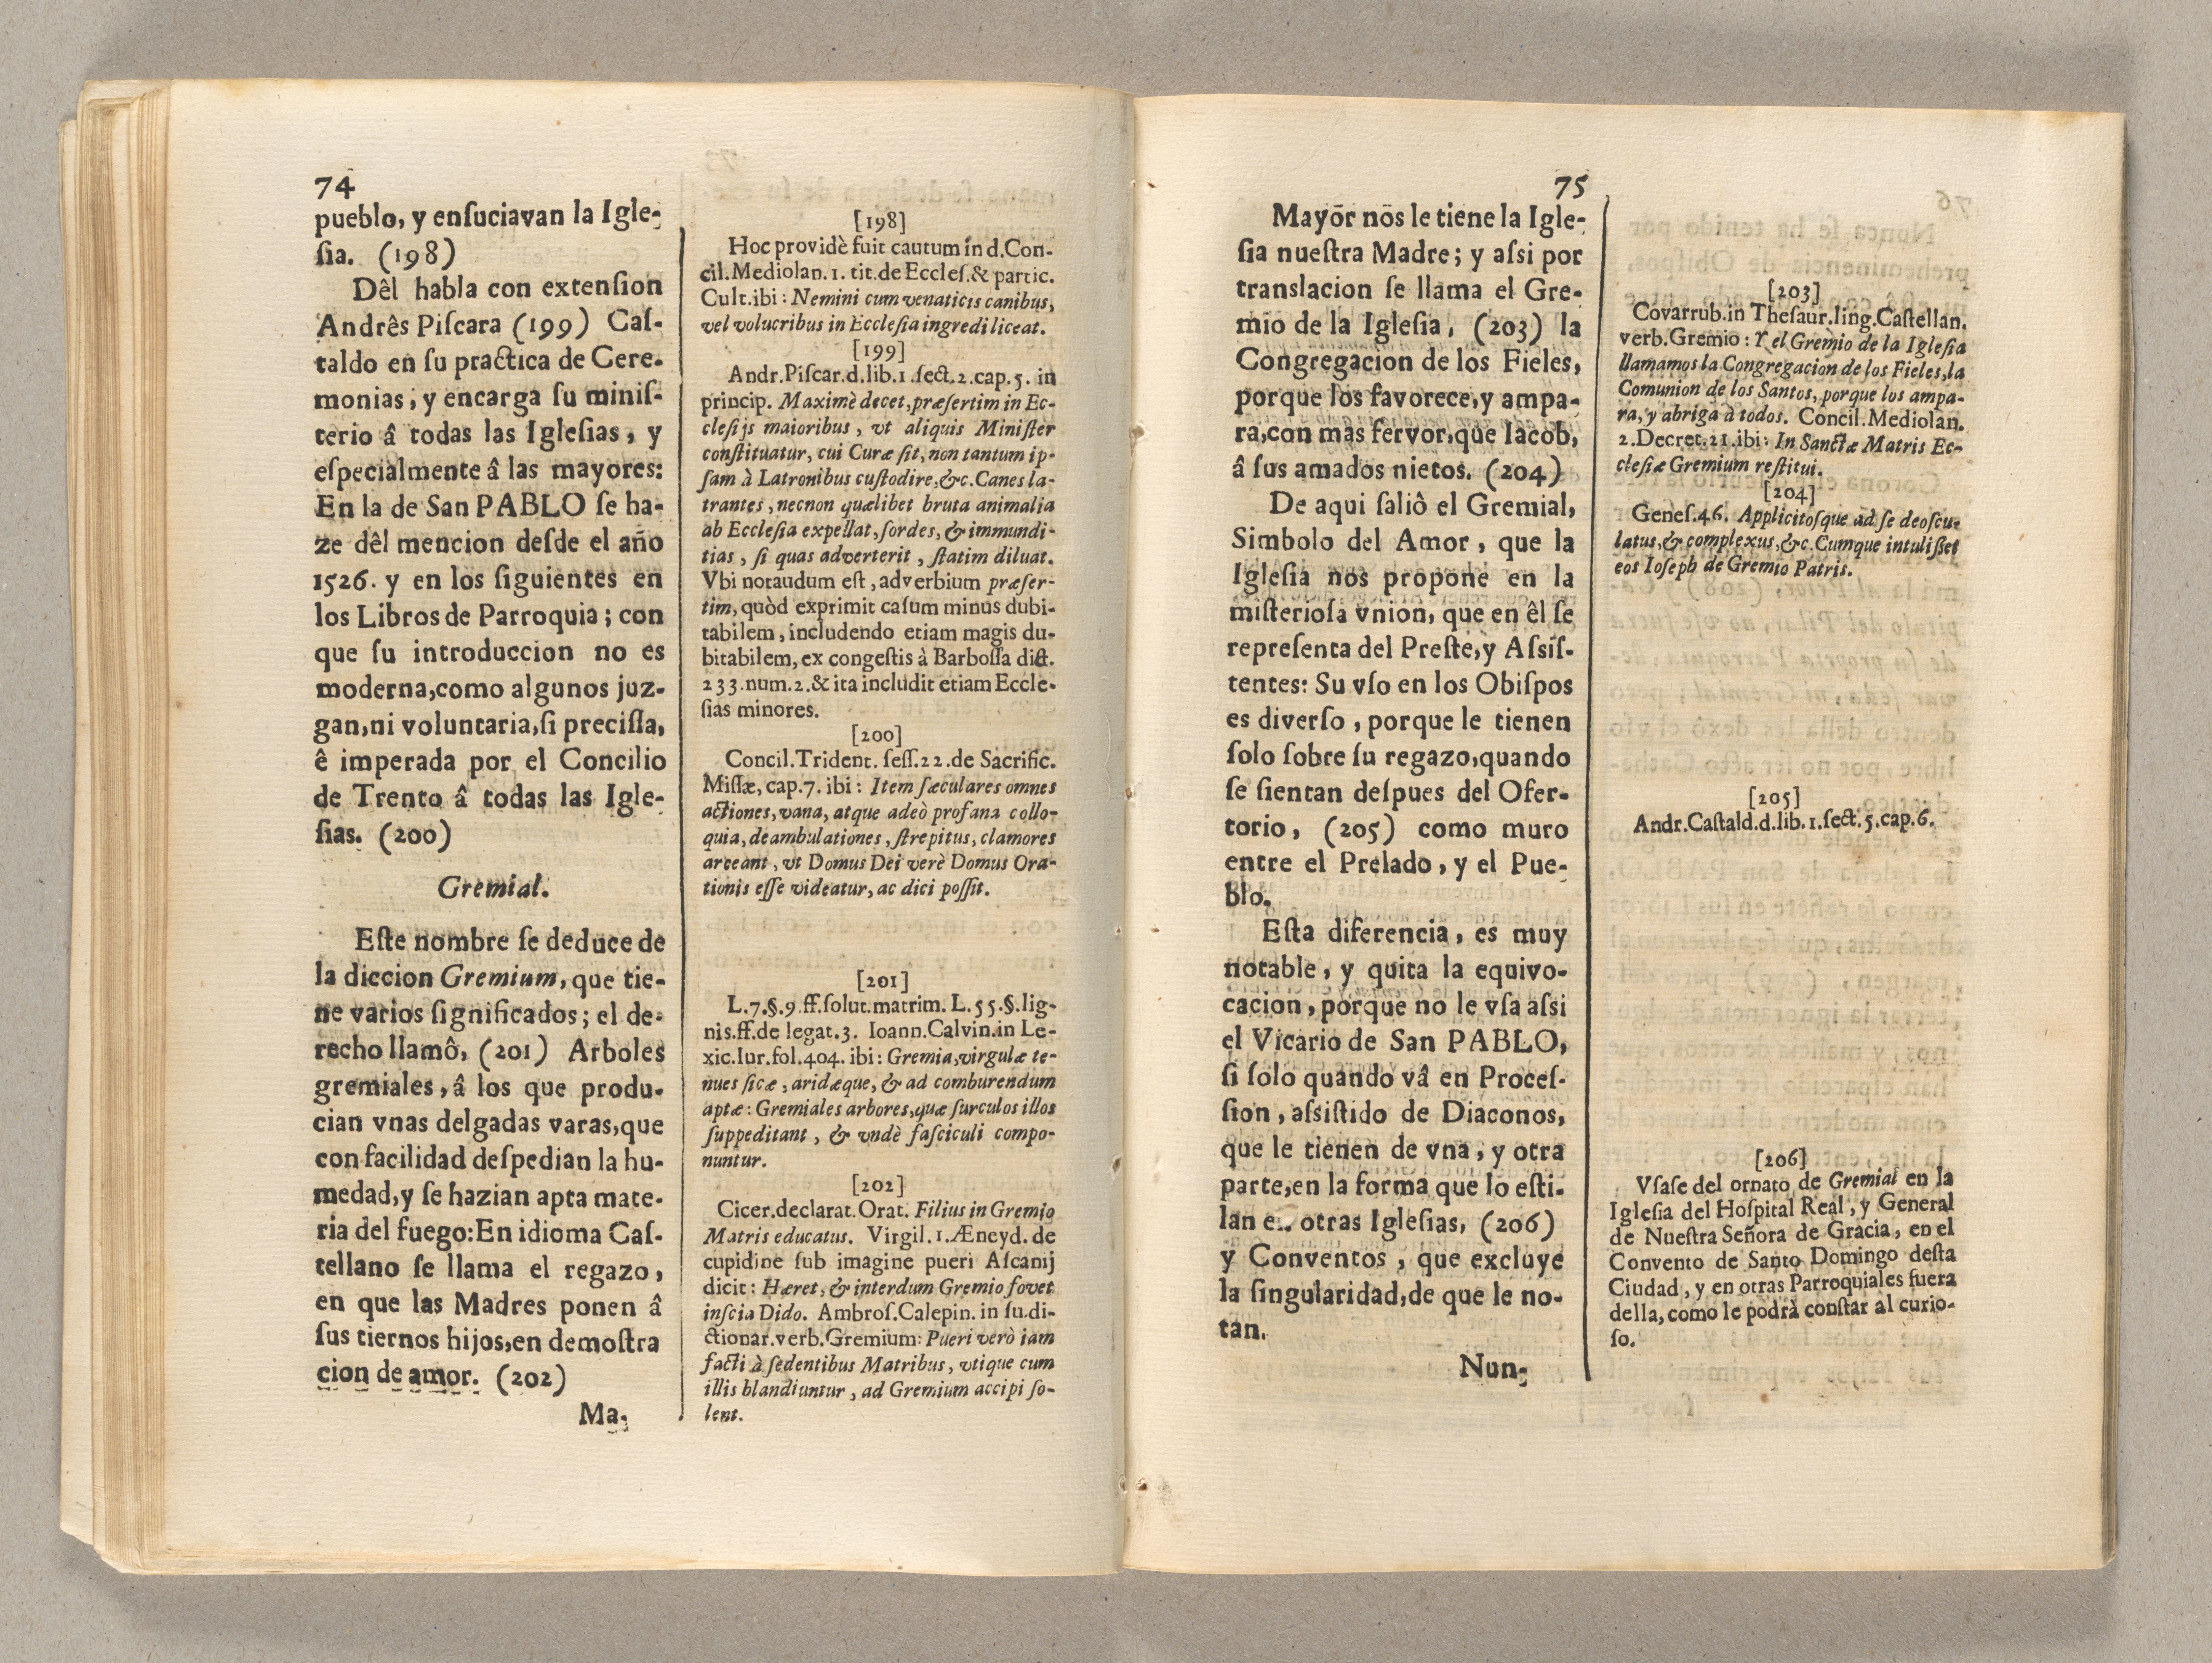 74
pueblo, y enſuciavan la Igle-
ſia. (198)
Dêl habla con extenſion
Andrês Piſcara (199) Caſ-
taldo en ſu practica de Cere-
monias, y encarga ſu miniſ-
terio â todas las Igleſias, y
eſpecialmente â las mayores:
En la de San PABLO ſe ha-
ze dêl mencion deſde el año
1526. y en los ſiguientes en
los Libros de Parroquia; con
que ſu introduccion no es
moderna,como algunos juz-
gan,ni voluntaria,ſi preciſſa,
ê imperada por el Concilio
de Trento â todas las Igle-
ſias. (200)
Gremial.
Eſte nombre ſe deduce de
la diccion Gremium, que tie-
ne varios ſignificados; el de-
recho llamô, (201) Arboles
gremiales, â los que produ-
cian vnas delgadas varas,que
con facilidad deſpedian la hu-
medad,y ſe hazian apta mate-
ria del fuego:En idioma Caſ-
tellano ſe llama el regazo,
en que las Madres ponen â
ſus tiernos hijos,en demoſtra
cion de amor. (202)
Ma-
[198]
Hoc providè fuit cautum in d.Con-
cil.Mediolan.1. tit.de Eccleſ.& partic.
Cult.ibi: Nemini cum venaticis canibus,
vel volucribus in Eccleſia ingredi liceat.
[199]
Andr.Piſcar.d.lib.1.ſect.2.cap.5. in
princip. Maximè decet,præſertim in Ec-
cleſijs maioribus, vt aliquis Miniſter
conſtituatur, cui Curæ ſit, non tantum ip-
ſam à Latronibus cuſtodire,&c.Canes la-
trantes, necnon quælibet bruta animalia
ab Eccleſia expellat, ſordes, & immundi-
tias, ſi quas adverterit, ſtatim diluat.
Vbi notaudum eſt, adverbium præſer-
tim, quòd exprimit caſum minus dubi-
tabilem, includendo etiam magis du-
bitabilem, ex congeſtis à Barboſſa dict.
233.num.2.& ita includit etiam Eccle-
ſias minores.
[200]
Concil.Trident. ſeſſ.22.de Sacrific.
Miſſæ, cap.7. ibi: Item ſæculares omnes
actiones, vana, atque adeò profana collo-
quia, deambulationes, ſtrepitus, clamores
arceant, vt Domus Dei verè Domus Ora-
tionis eſſe videatur, ac dici poſſit.
[201]
L.7.§.9.ff.ſolut.matrim. L.55.§.lig-
nis.ff.de legat.3. Ioann.Calvin.in Le-
xic.Iur.fol.404. ibi: Gremia,virgulæ te-
nues ſicæ, aridæque, & ad comburendum
aptæ: Gremiales arbores,quæ ſurculos illos
ſuppeditant, & vndè faſciculi compo-
nuntur.
[202]
Cicer.declarat.Orat. Filius in Gremio
Matris educatus. Virgil.1.Æneyd. de
cupidine ſub imagine pueri Aſcanij
dicit: Hæret, & interdum Gremio fovet
inſcia Dido. Ambroſ.Calepin. in ſu.di-
ctionar.verb.Gremium: Pueri verò iam
facti à ſedentibus Matribus, vtique cum
illis blandiuntur, ad Gremium accipi ſo-
lent.
75
Mayor nos le tiene la Igle-
ſia nueſtra Madre; y aſsi por
translacion ſe llama el Gre-
mio de la Igleſia, (203) la
Congregacion de los Fieles,
porque los favorece,y ampa-
ra,con mas fervor,que Iacob,
â ſus amados nietos. (204)
De aqui ſaliô el Gremial,
Simbolo del Amor, que la
Igleſia nos propone en la
miſterioſa vnion, que en êl ſe
repreſenta del Preſte,y Aſsiſ-
tentes: Su vſo en los Obiſpos
es diverſo, porque le tienen
ſolo ſobre ſu regazo,quando
ſe ſientan deſpues del Ofer-
torio, (205) como muro
entre el Prelado, y el Pue-
blo.
Eſta diferencia, es muy
notable, y quita la equivo-
cacion, porque no le vſa aſsi
el Vicario de San PABLO,
ſi ſolo quando vâ en Proceſ-
ſion, aſsiſtido de Diaconos,
que le tienen de vna, y otra
parte,en la forma que lo eſti-
lan en otras Igleſias, (206)
y Conventos, que excluye
la ſingularidad,de que le no-
tan.
Nun-
[203]
Covarrub.in Theſaur.ling.Caſtellan.
verb.Gremio: Y el Gremio de la Igleſia
llamamos la Congregacion de los Fieles,la
Comunion de los Santos, porque los ampa-
ra, y abriga à todos. Concil.Mediolan.
2.Decret.21.ibi: In Sanctæ Matris Ec-
cleſiæ Gremium reſtitui.
[204]
Geneſ.46. Applicitoſque ad ſe deoſcu-
latus,& complexus,&c.Cumque intuliſſet
eos Ioſeph de Gremio Patris.
[205]
Andr.Caſtald.d.lib.1.ſect.5.cap.6.
[206]
Vſaſe del ornato de Gremial en la
Igleſia del Hoſpital Real, y General
de Nueſtra Señora de Gracia, en el
Convento de Santo Domingo deſta
Ciudad, y en otras Parroquiales fuera
della, como le podrà conſtar al curio-
ſo.